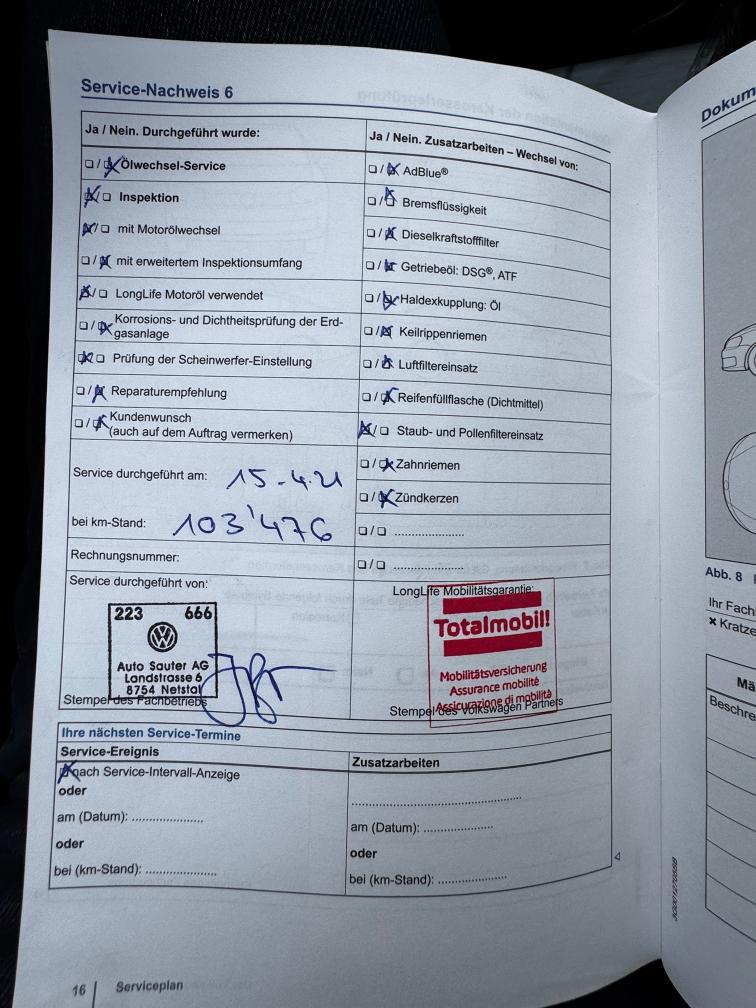 Service-Nachweis 6
Ja / Nein. Durchgeführt wurde:
☐ / ☒ Ölwechsel-Service
☒ / ☐ Inspektion
☒ / ☐ mit Motorölwechsel
☐ / ☒ mit erweitertem Inspektionsumfang
☒ / ☐ LongLife Motoröl verwendet
☐ / ☒ Korrosions- und Dichtheitsprüfung der Erd-
gasanlage
☒ / ☐ Prüfung der Scheinwerfer-Einstellung
☐ / ☒ Reparaturempfehlung
☐ / ☒ Kundenwunsch
(auch auf dem Auftrag vermerken)
Service durchgeführt am: 15.4.21
bei km-Stand: 103'476
Rechnungsnummer:
Service durchgeführt von:
223 666
Auto Sauter AG
Landstrasse 6
8754 Netstal
Stempel des Fachbetriebs
Ja / Nein. Zusatzarbeiten – Wechsel von:
☐ / ☒ AdBlue®
☐ / ☒ Bremsflüssigkeit
☐ / ☒ Dieselkraftstofffilter
☐ / ☒ Getriebeöl: DSG®, ATF
☐ / ☒ Haldexkupplung: Öl
☐ / ☒ Keilrippenriemen
☐ / ☒ Luftfiltereinsatz
☐ / ☒ Reifenfüllflasche (Dichtmittel)
☒ / ☐ Staub- und Pollenfiltereinsatz
☐ / ☒ Zahnriemen
☐ / ☒ Zündkerzen
☐ / ☐ ......................
☐ / ☐ ......................
LongLife Mobilitätsgarantie:
Totalmobil!
Mobilitätsversicherung
Assurance mobilité
Assicurazione di mobilità
Stempel des Volkswagen Partners
Ihre nächsten Service-Termine
Service-Ereignis
☒ nach Service-Intervall-Anzeige
oder
am (Datum): ......................
oder
bei (km-Stand): ......................
Zusatzarbeiten
......................
am (Datum): ......................
oder
bei (km-Stand): ......................
16 Serviceplan
Dokum
Abb. 8
Ihr Fach
× Kratze
Mä
Beschre